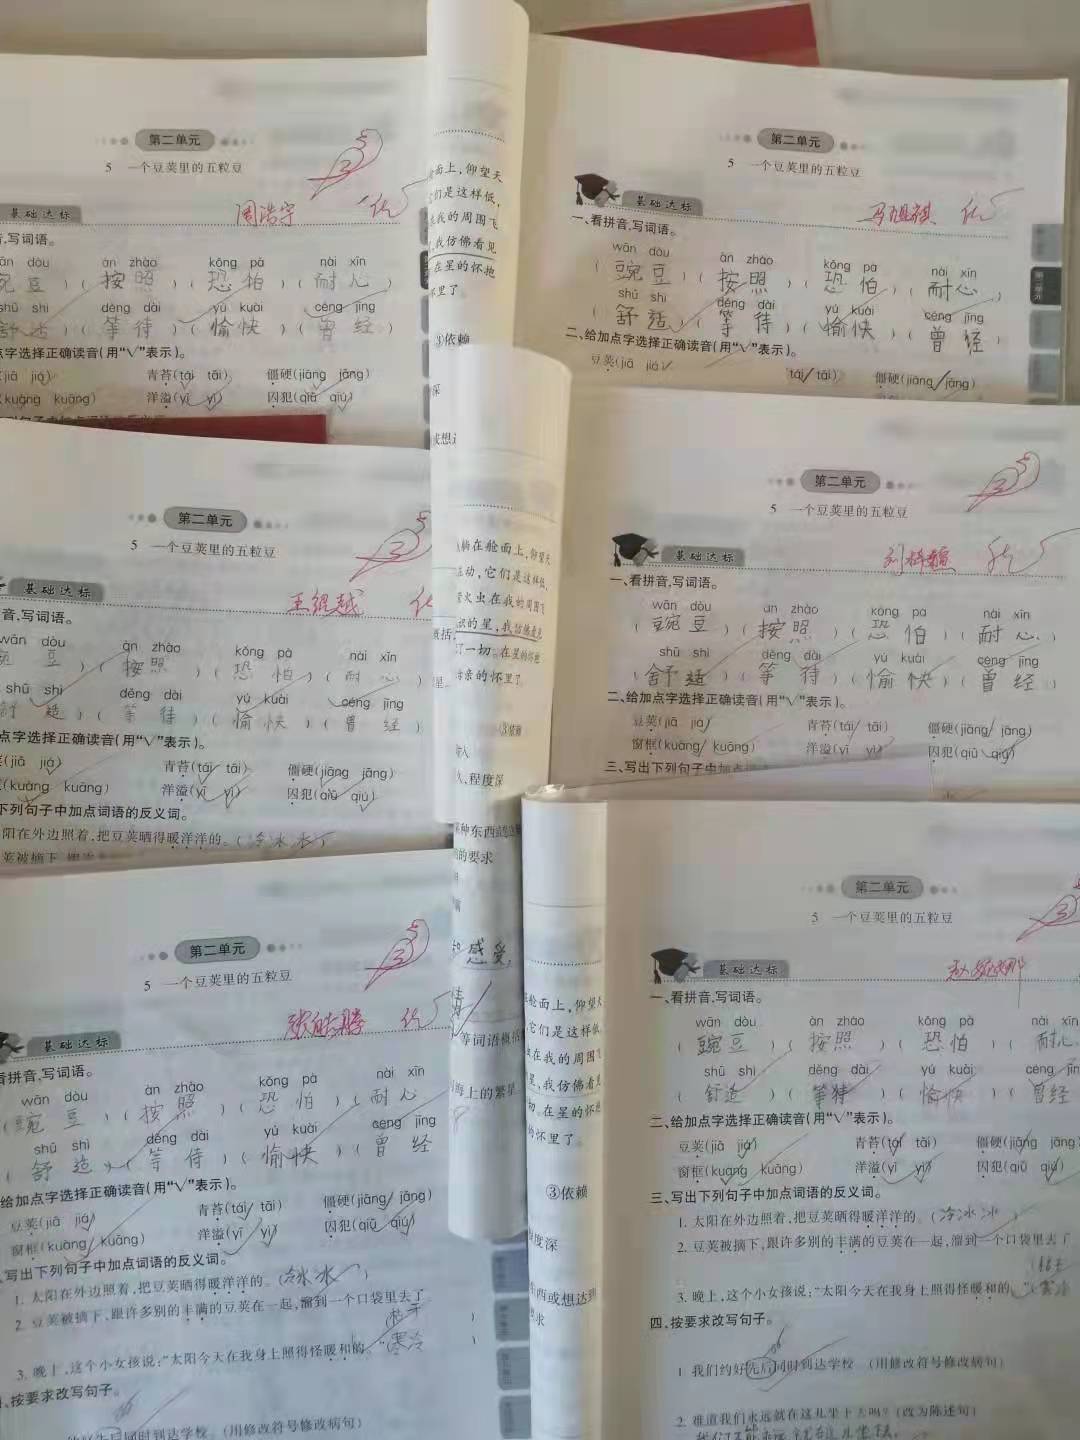 第二单元
5 一个豆荚里的五粒豆
基础达标
周浩宇 优
写词语。
ān dòu àn zhào kǒng pà nài xīn
豆 ) ( 按照 ) ( 恐怕 ) ( 耐心 )
shū shì děng dài yú kuài céng jīng
舒适 ) ( 等待 ) ( 愉快 ) ( 曾经
字选择正确读音(用“√”表示)。
(jiā jiá) 青苔(tái tāi) 僵硬(jiāng jāng)
(kuàng kuāng) 洋溢(yī yì) 囚犯(qiū qiú)
面上,仰望天
们是这样低,
我的周围飞
我仿佛看见
在星的怀抱
怀里了。
③依赖
深
第二单元
5 一个豆荚里的五粒豆
基础达标
优
一、看拼音,写词语。
wān dòu àn zhào kǒng pà nài xīn
( 豌豆 ) ( 按照 ) ( 恐怕 ) ( 耐心 )
shū shì děng dài yú kuài céng jīng
( 舒适 ) ( 等待 ) ( 愉快 ) ( 曾经 )
二、给加点字选择正确读音(用“√”表示)。
豆荚(jiā jiá) tái tāi) 僵硬(jiāng jāng)
第二单元
5 一个豆荚里的五粒豆
基础达标
王锟越
音,写词语。
wān dòu àn zhào kǒng pà nài xīn
豌豆 ) ( 按照 ) ( 恐怕 ) ( 耐心 )
shū shì děng dài yú kuài céng jīng
舒适 ) ( 等待 ) ( 愉快 ) ( 曾经 )
点字选择正确读音(用“√”表示)。
(jiā jiá) 青苔(tái tāi) 僵硬(jiāng jāng)
(kuàng kuāng) 洋溢(yī yì) 囚犯(qiū qiú)
下列句子中加点词语的反义词。
阳在外边照着,把豆荚晒得暖洋洋的。(冷冰冰)
荚被摘下
躺在舱面上,仰望天
在动,它们是这样低,
萤火虫在我的周围飞
的星,我仿佛看见
了一切。在星的怀抱
母亲的怀里了。
③依赖
程度深
的要求
第二单元
5 一个豆荚里的五粒豆
基础达标
一、看拼音,写词语。
wān dòu àn zhào kǒng pà nài xīn
( 豌豆 ) ( 按照 ) ( 恐怕 ) ( 耐心 )
shū shì děng dài yú kuài céng jīng
( 舒适 ) ( 等待 ) ( 愉快 ) ( 曾经 )
二、给加点字选择正确读音(用“√”表示)。
豆荚(jiā jiá) 青苔(tái tāi) 僵硬(jiāng jāng)
窗框(kuàng kuāng) 洋溢(yī yì) 囚犯(qiū qiú)
三、写出下列句子中加点词
第二单元
5 一个豆荚里的五粒豆
基础达标
优
看拼音,写词语。
wān dòu àn zhào kǒng pà nài xīn
( 豌豆 ) ( 按照 ) ( 恐怕 ) ( 耐心
shū shì děng dài yú kuài céng jīng
( 舒适 ) ( 等待 ) ( 愉快 ) ( 曾经
给加点字选择正确读音(用“√”表示)。
豆荚(jiā jiá) 青苔(tái tāi) 僵硬(jiāng jāng)
窗框(kuàng kuāng) 洋溢(yī yì) 囚犯(qiū qiú)
写出下列句子中加点词语的反义词。
1. 太阳在外边照着,把豆荚晒得暖洋洋的。(冷冰冰)
2. 豆荚被摘下,跟许多别的丰满的豆荚在一起,溜到一个口袋里去了
3. 晚上,这个小女孩说:“太阳今天在我身上照得怪暖和的。” 寒冷 )
按要求改写句子。
同时到达学校。(用修改符号修改病句)
感受
等词语概括
海上的繁星
舱面上,仰望天
它们是这样低
在我的周围飞
星,我仿佛看见
切。在星的怀抱
的怀里了。
③依赖
程度深
东西或想达到
要求
第二单元
5 一个豆荚里的五粒豆
基础达标
一、看拼音,写词语。
wān dòu àn zhào kǒng pà nài xīn
( 豌豆 ) ( 按照 ) ( 恐怕 ) ( 耐心
shū shì děng dài yú kuài céng jīn
( 舒适 ) ( 等待 ) ( 愉快 ) ( 曾经
二、给加点字选择正确读音(用“√”表示)。
豆荚(jiā jiá) 青苔(tái tāi) 僵硬(jiāng jāng)
窗框(kuàng kuāng) 洋溢(yī yì) 囚犯(qiū qiú)
三、写出下列句子中加点词语的反义词。
1. 太阳在外边照着,把豆荚晒得暖洋洋的。(冷冰冰 )
2. 豆荚被摘下,跟许多别的丰满的豆荚在一起,溜到一个口袋里去了
3. 晚上,这个小女孩说:“太阳今天在我身上照得怪暖和的。” 寒冷
四、按要求改写句子。
1 我们约好先后同时到达学校。(用修改符号修改病句)
2. 难道我们永远就在这儿坐下去吗?(改为陈述句)